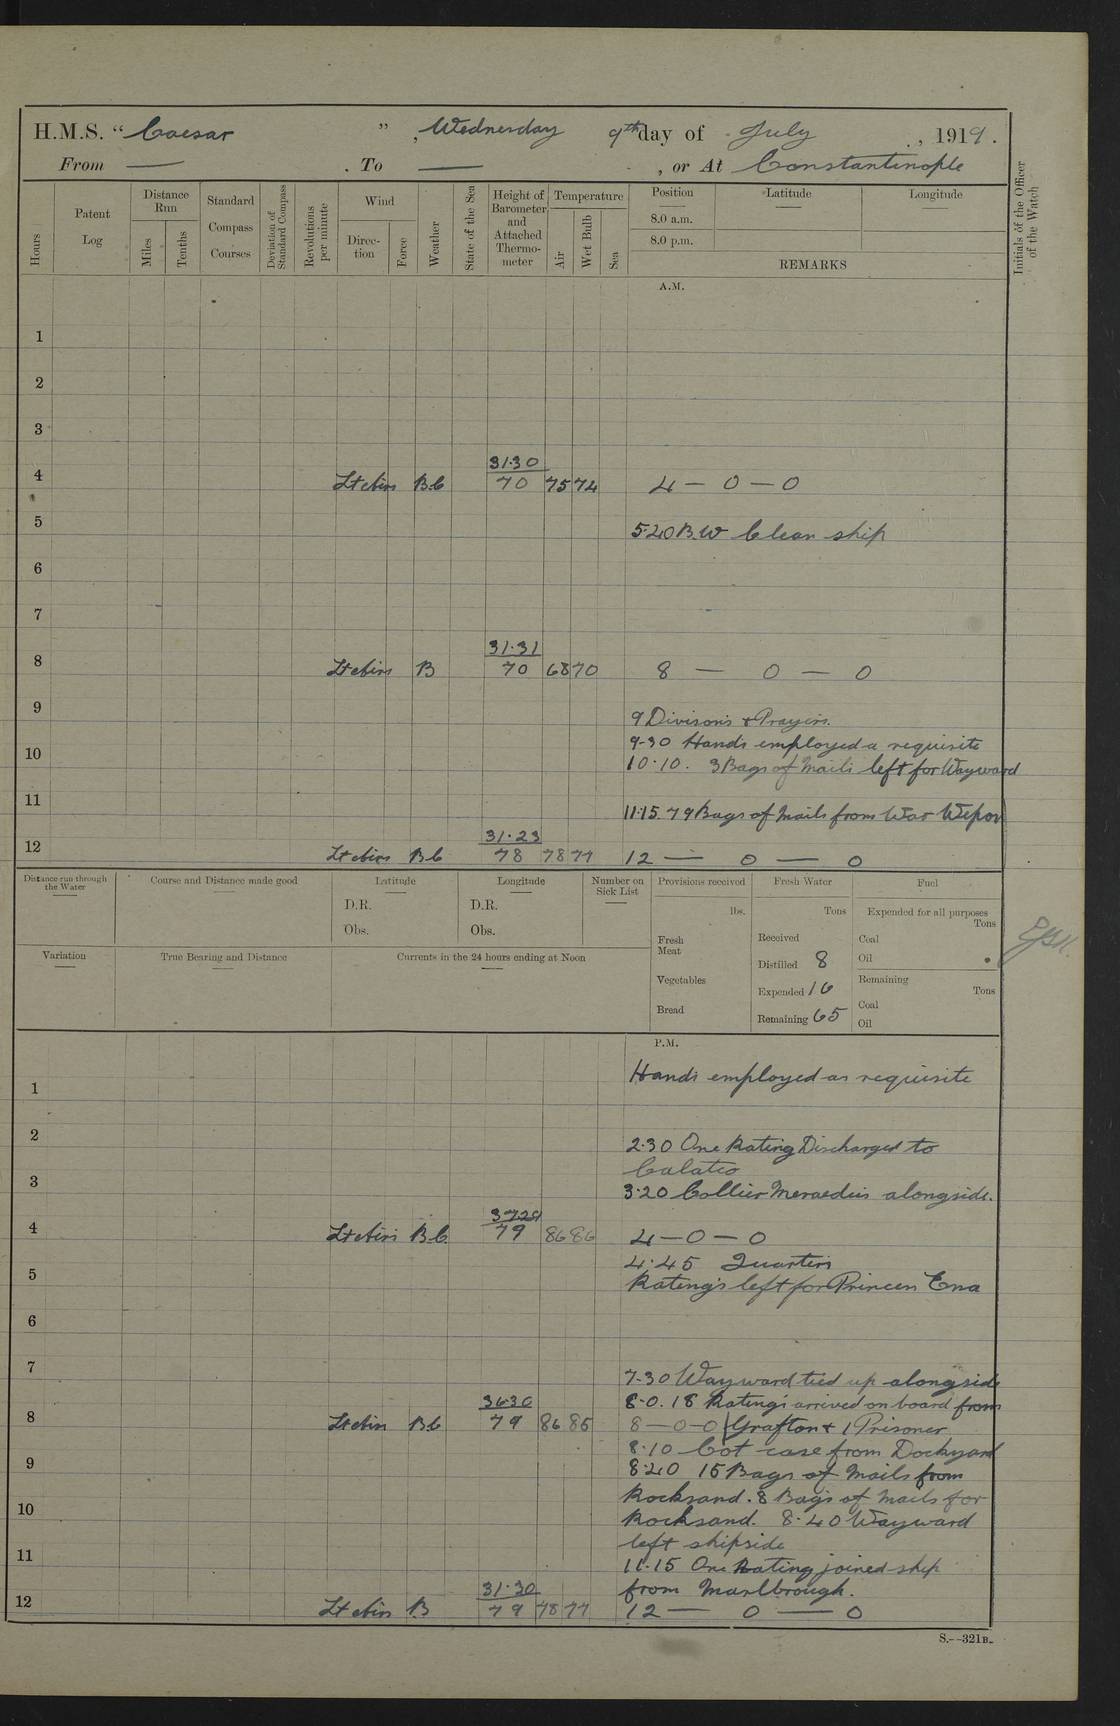 H.M.S. “ Caesar ” , Wednesday 9th day of July , 1919 .
From — . To — , or At Constantinople
Hours
Patent Log
Distance Run
Miles
Tenths
Standard Compass Courses
Deviation of Standard Compass
Revolutions per minute
Wind
Direction
Force
Weather
State of the Sea
Height of Barometer and Attached Thermometer
Temperature
Air
Wet Bulb
Sea
Position
Latitude
Longitude
8.0 a.m.
8.0 p.m.
REMARKS
Initials of the Officer of the Watch
A.M.
1
2
3
31.30
4 Lt airs B.C 70 75 74 4 — 0 — 0
5 5.20 B.W Clean ship
6
7
31.31
8 Lt airs B 70 68 70 8 — 0 — 0
9 9 Divisons & Prayers.
9-30 Hands employed a requisite
10 10.10. 3 Bags of Mails left for Wayward
11 11.15. 79 Bags of Mails from War
31.23
12 Lt airs B C 78 78 77 12 — 0 — 0
Distance run through the Water
Course and Distance made good
Latitude
D.R.
Obs.
Longitude
D.R.
Obs.
Number on Sick List
Provisions received
lbs.
Fresh Meat
Vegetables
Bread
Fresh Water
Tons
Received
Distilled 8
Expended 16
Remaining 65
Fuel
Expended for all purposes
Tons
Coal
Oil
Remaining
Tons
Coal
Oil
Variation
True Bearing and Distance
Currents in the 24 hours ending at Noon
P.M.
1 Hands employed as requisite
2 2.30 One Rating Discharged to
3 3.20 Collier alongside.
4 Lt airs B.C. 79 86 86 4 — 0 — 0
4.45 Quarters
5 Ratings left for Princess Ena
6
7 7-30 Wayward tied up alongside
8.0. 18 Ratings arrived on board from
8 Lt airs B C 79 86 85 8 — 0 — 0 Grafton & 1 Prisoner
8.10 Cot case from Dockyard
9 8.20 15 Bags of Mails from
Rocksand. 8 Bags of Mails for
10 Rocksand. 8.40 Wayward
left shipside
11 11.15 One Rating joined ship
31.30 from Marlbrough.
12 Lt airs B 79 78 77 12 — 0 — 0
S.—321B.